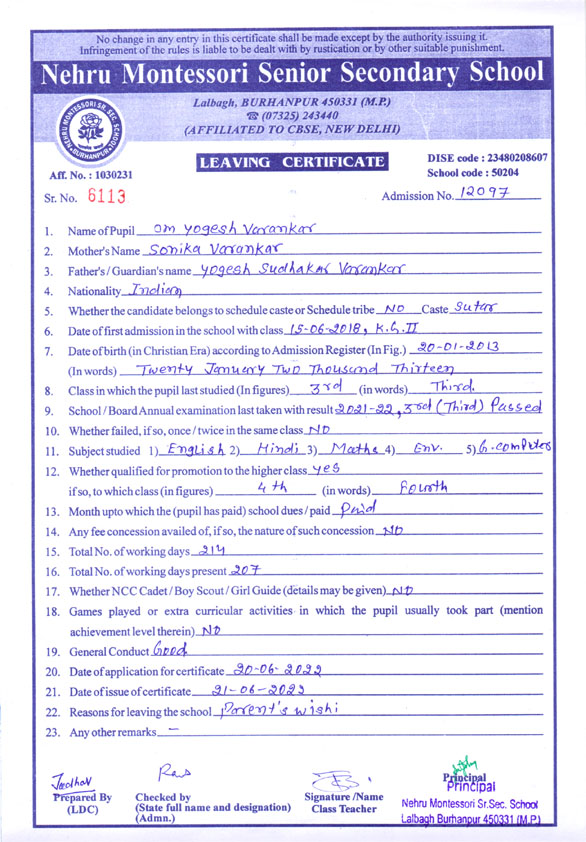 No change in any entry in this certificate shall be made except by the authority issuing it.
Infringement of the rules is liable to be dealt with by rustication or by other suitable punishment.
Nehru Montessori Senior Secondary School
NEHRU MONTESSORI SR. SEC. SCHOOL
BURHANPUR
Lalbagh, BURHANPUR 450331 (M.P.)
☎ (07325) 243440
(AFFILIATED TO CBSE, NEW DELHI)
LEAVING CERTIFICATE
DISE code : 23480208607
School code : 50204
Aff. No. : 1030231
Sr. No. 6113
Admission No. 12097
1. Name of Pupil Om Yogesh Varankar
2. Mother's Name Sonika Varankar
3. Father's / Guardian's name Yogesh Sudhakar Varankar
4. Nationality Indian
5. Whether the candidate belongs to schedule caste or Schedule tribe NO Caste Sutar
6. Date of first admission in the school with class 15-06-2018, K.G. II
7. Date of birth (in Christian Era) according to Admission Register (In Fig.) 20-01-2013
(In words) Twenty January Two Thousand Thirteen
8. Class in which the pupil last studied (In figures) 3rd (in words) Third.
9. School / Board Annual examination last taken with result 2021-22, 3rd (Third) Passed
10. Whether failed, if so, once / twice in the same class NO
11. Subject studied 1) English 2) Hindi 3) Maths 4) Env. 5) G. Computer
12. Whether qualified for promotion to the higher class yes
if so, to which class (in figures) 4th (in words) Fourth
13. Month upto which the (pupil has paid) school dues / paid Paid
14. Any fee concession availed of, if so, the nature of such concession NO
15. Total No. of working days 214
16. Total No. of working days present 207
17. Whether NCC Cadet / Boy Scout / Girl Guide (details may be given) NO
18. Games played or extra curricular activities in which the pupil usually took part (mention
achievement level therein) NO
19. General Conduct Good
20. Date of application for certificate 20-06-2022
21. Date of issue of certificate 21-06-2022
22. Reasons for leaving the school Parent's wishi
23. Any other remarks —
Jadhav
Prepared By
(LDC)
Checked by
(State full name and designation)
(Admn.)
Signature /Name
Class Teacher
Principal
Principal
Nehru Montessori Sr.Sec. School
Lalbagh Burhanpur 450331 (M.P.)